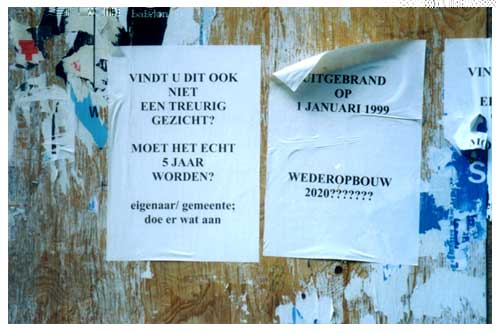 VINDT U DIT OOK
NIET
EEN TREURIG
GEZICHT?
MOET HET ECHT
5 JAAR
WORDEN?
eigenaar/ gemeente;
doe er wat aan
UITGEBRAND
OP
1 JANUARI 1999
WEDEROPBOUW
2020???????
VIN